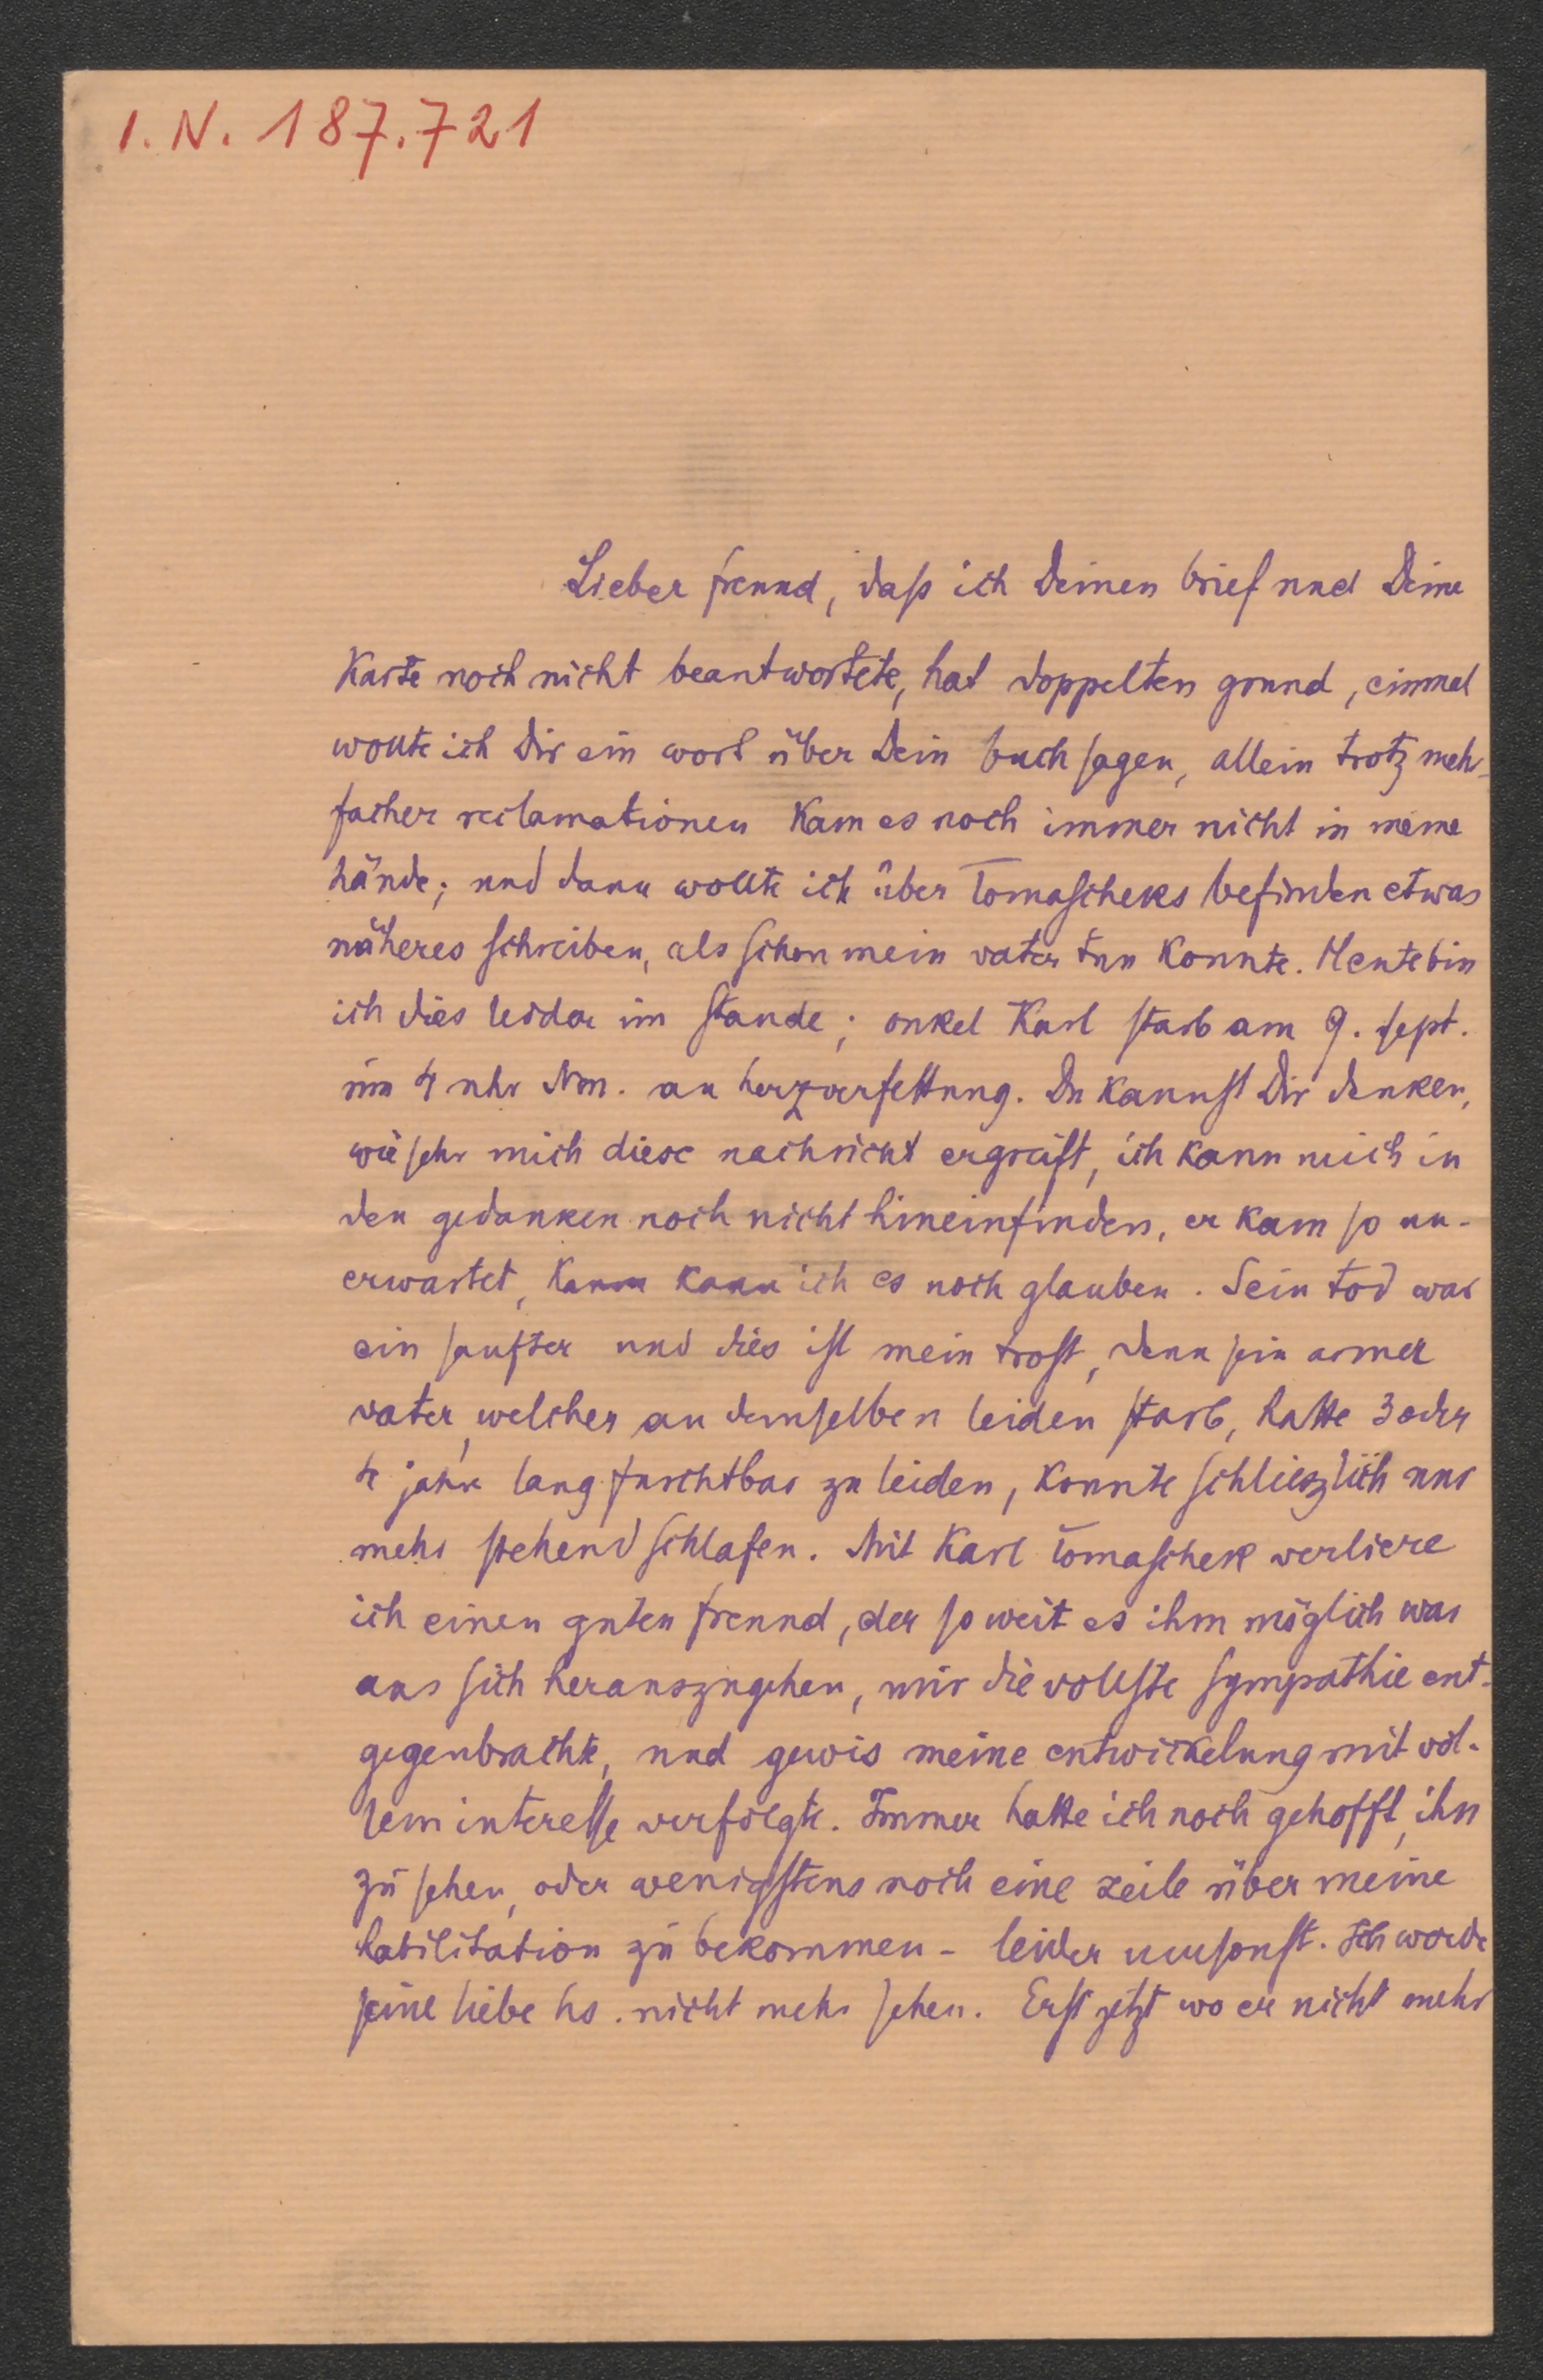 I. N. 187.721
Lieber freund, daß ich Deinen brief und Deine
Karte noch nicht beantwortete, hat doppelten grund, einmal
wollte ich Dir ein wort über Dein buch sagen, allein trotz meh-
facher reclamationen kam es noch immer nicht in meine
hände; und dann wollte ich über Tomascheks befinden etwas
näheres schreiben, als schon mein vater tun konnte. Heute bin
ich dies leider im stande; onkel Karl starb am 9. sept.
um 4 uhr Nm. an herzverfettung. Du kannst Dir denken,
wie sehr mich diese nachricht ergreift, ich kann mich in
den gedanken noch nicht hineinfinden, er kam so un-
erwartet, kaum kann ich es noch glauben. Sein tod war
ein sanfter und dies ist mein trost, denn sein armer
vater, welcher an demselben leiden starb, hatte 3 oder
4 jahre lang furchtbar zu leiden, konnte schlieszlich nur
mehr stehend schlafen. Mit Karl Tomaschek verliere
ich einen guten freund, der so weit es ihm möglich war
aus sich herauszugehen, mir die vollste sympathie ent-
gegenbrachte, und gewis meine entwickelung mit vol-
lem interesse verfolgte. Immer hatte ich noch gehofft, ihn
zu sehen, oder wenigstens noch eine zeile über meine
habilitation zu bekommen - leider umsonst. Ich werde
seine liebe hs. nicht mehr sehen. Erst jetzt wo er nicht mehr